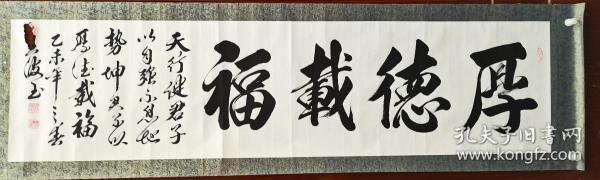 厚德載福
天行健君子
以自强不息地
勢坤君子以
厚德載福
乙未年之春
波书
孔夫子旧书网
www.kongfz.com